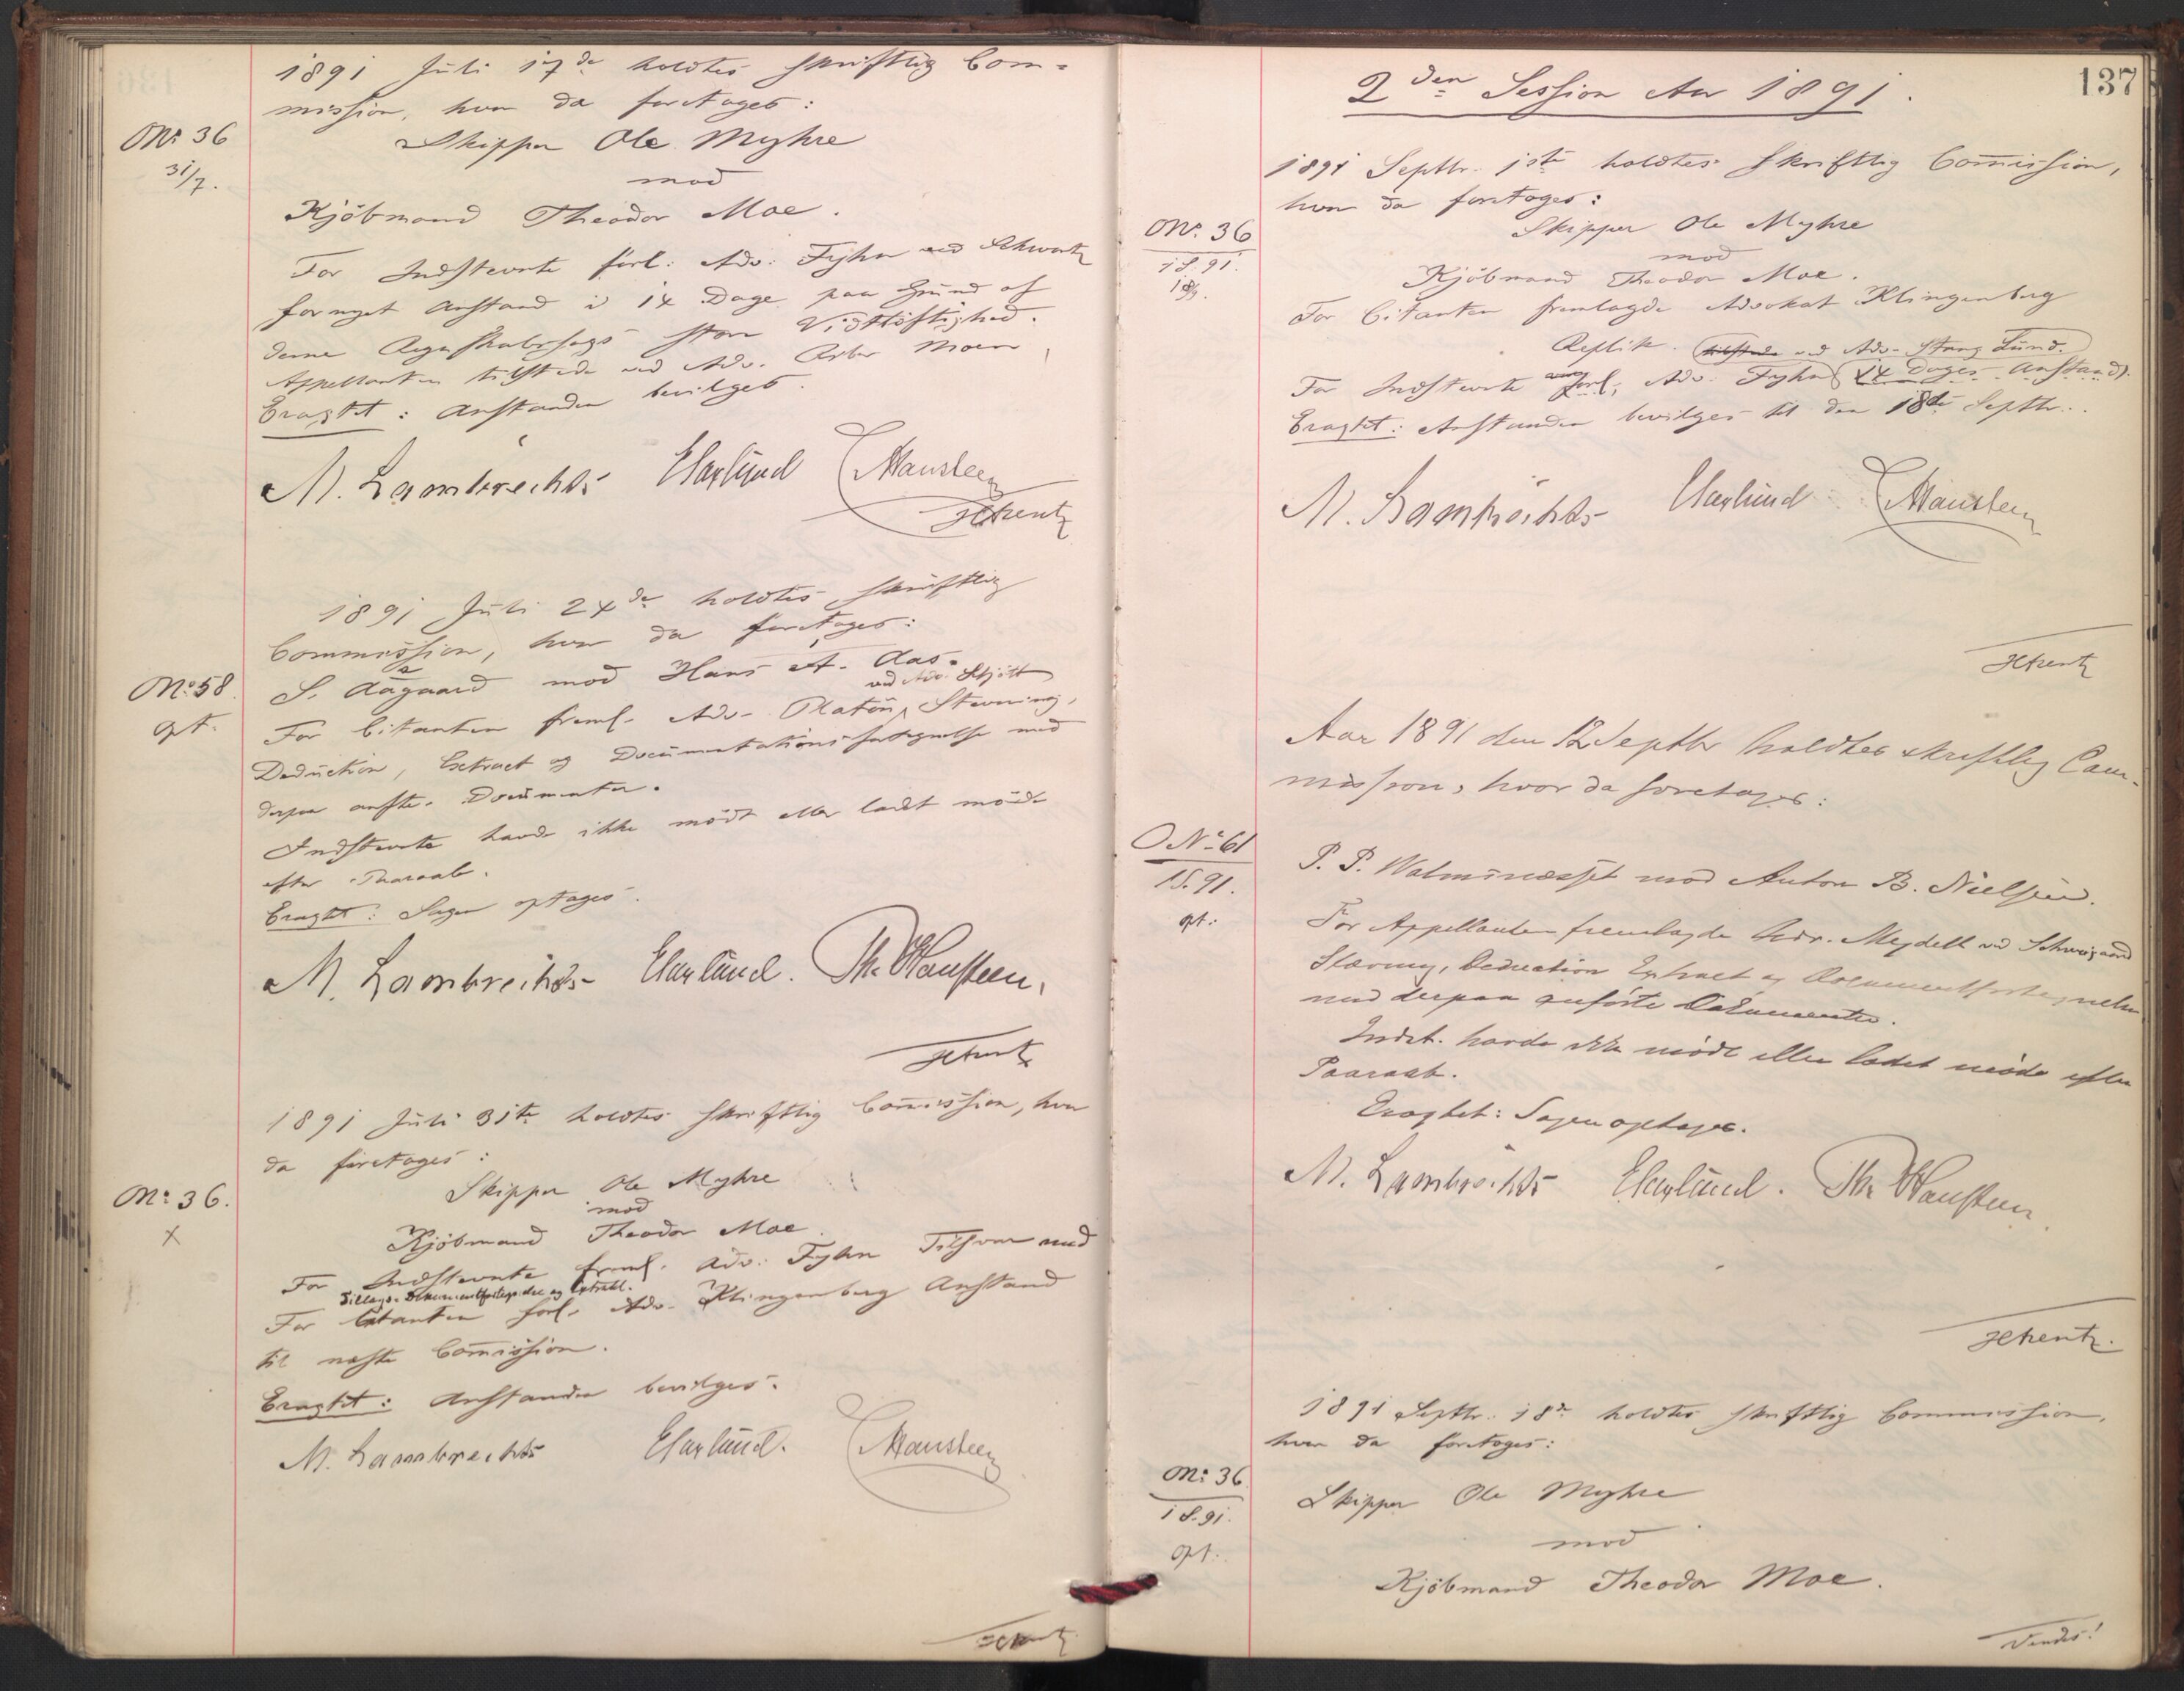 1891 Juli 17de holdtes skriftlig Com=
mission, hvor da foretoges:
No 36
31/7.
Skipper Ole Myhre
mod
Kjöbmand Theodor Moe.
For Indstevnte forl: Adv: Fyhn ved Schwartz
fornyet Anstand i 14 Dage paa Grund af
denne Regnskabssags store Vidtløftighed.
Appellanten tilstede ved Adv. Moen
Eragtet: Anstanden bevilges.
M. Lambrechts Haxlund Hansteen
1891 Juli 24de holdtes skriftlig
Commission, hvor da foretoges:
No 58
opt.
S. Aagaard mod Hans A. Aas.
ved Adv. Skjött
For Citanten freml. Adv. Platou Stevning,
Deduction, Extract og Documentationsfortegnelse med
derpaa anfte. Documenter.
Indstevnte havde ikke mödt eller ladet möde
efter Paaraab.
Eragtet: Sagen optages.
M. Lambrechts Haxlund. Th. Hansteen.
1891 Juli 31te holdtes skriftlig Commission, hvor
da foretoges:
No 36.
x
Skipper Ole Myhre
mod
Kjöbmand Theodor Moe
For Indstevnte freml. Adv: Fyhn Tilsvar med
Tillægs-Dokumentfortegnelse og Extrakt.
For Citanten forl. Adv. Klingenberg Anstand
til næste Commission.
Eragtet: Anstanden bevilges.
M. Lambrechts Haxlund. Hansteen
137
2den Session Aar 1891.
1891 Septbr. 1ste holdtes skriftlig Commission,
hvor da foretoges:
No. 36
1 S. 91.
18/9.
Skipper Ole Myhre
mod
Kjöbmand Theodor Moe.
For Citanten fremlagde Advokat Klingenberg
Replik. tilstede ved Adv. Stang Lund.
For Indstevnte forl. Adv. Fyhn 14 Dages Anstand.
Eragtet: Anstanden bevilges til den 18de Septbr.
M. Lambrechts Haxlund Hansteen
Aar 1891 den 12 Septbr holdtes skriftlig Com-
mission, hvor da foretoges:
No 61
1 S. 91.
opt:
P. P. mod Anton B. Nielsen.
For Appellanten fremlagde Adv. Mejdell ved Schweigaard
Stævning, Deduction Extract og Documentfortegnelse
med derpaa anførte Dokumenter.
Indst. havde ikke mödt eller ladet möde efter
Paaraab.
Eragtet: Sagen optages.
M. Lambrechts Haxlund. Th. Hansteen
1891 Septbr. 18de holdtes skriftlig Commission,
hvor da foretoges:
No: 36
1 S. 91.
opt.
Skipper Ole Myhre
mod
Kjöbmand Theodor Moe.
Vendes!